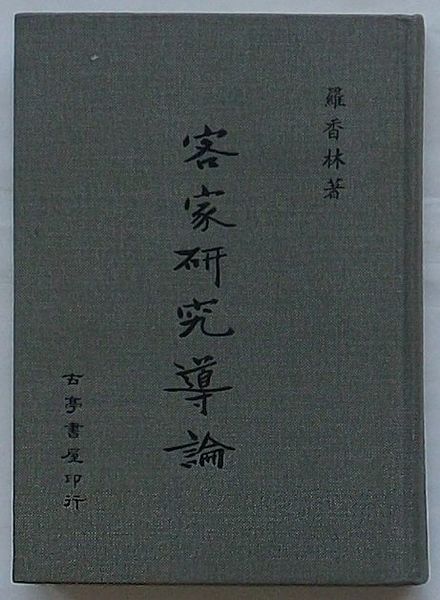 羅香林著
客家研究導論
古亭書屋印行